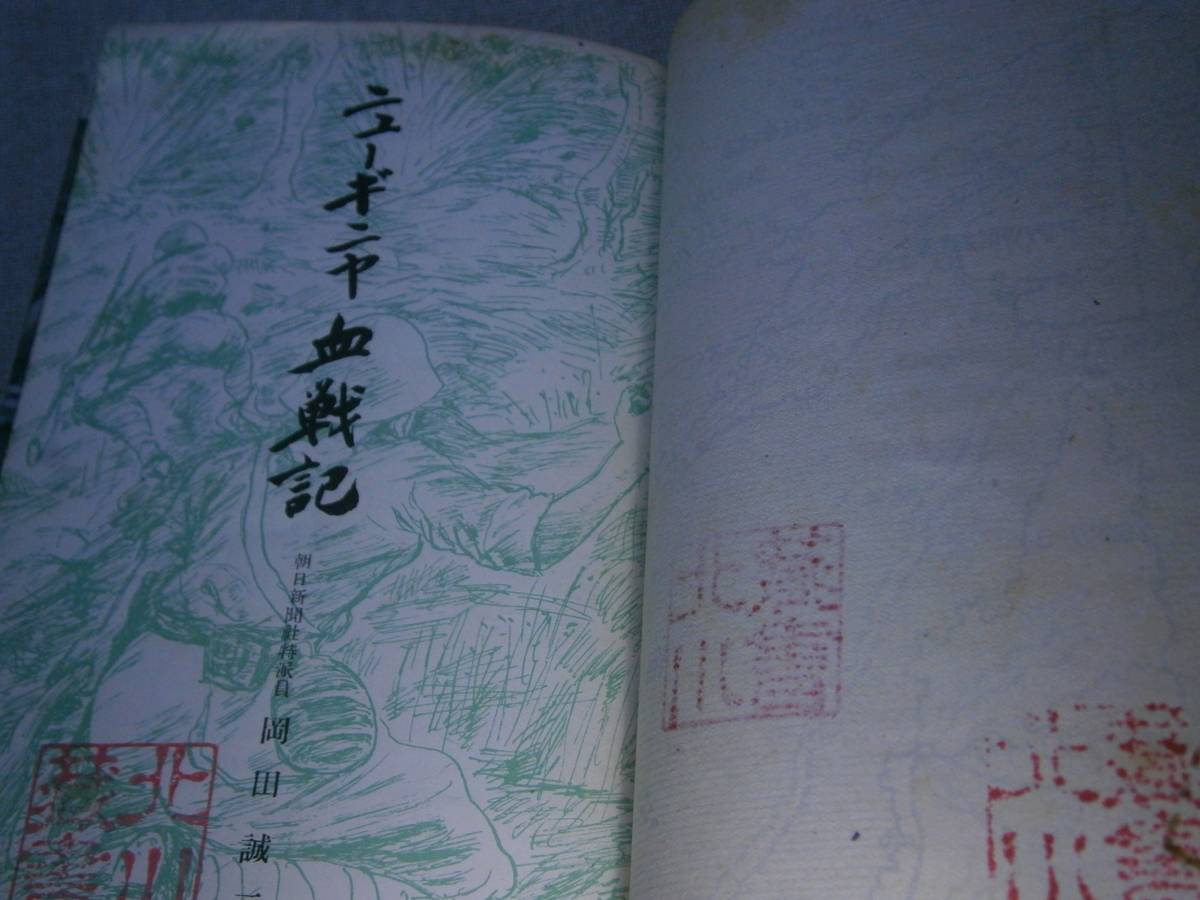 ニューギニヤ血戦記
朝日新聞社特派員 岡田誠
北川